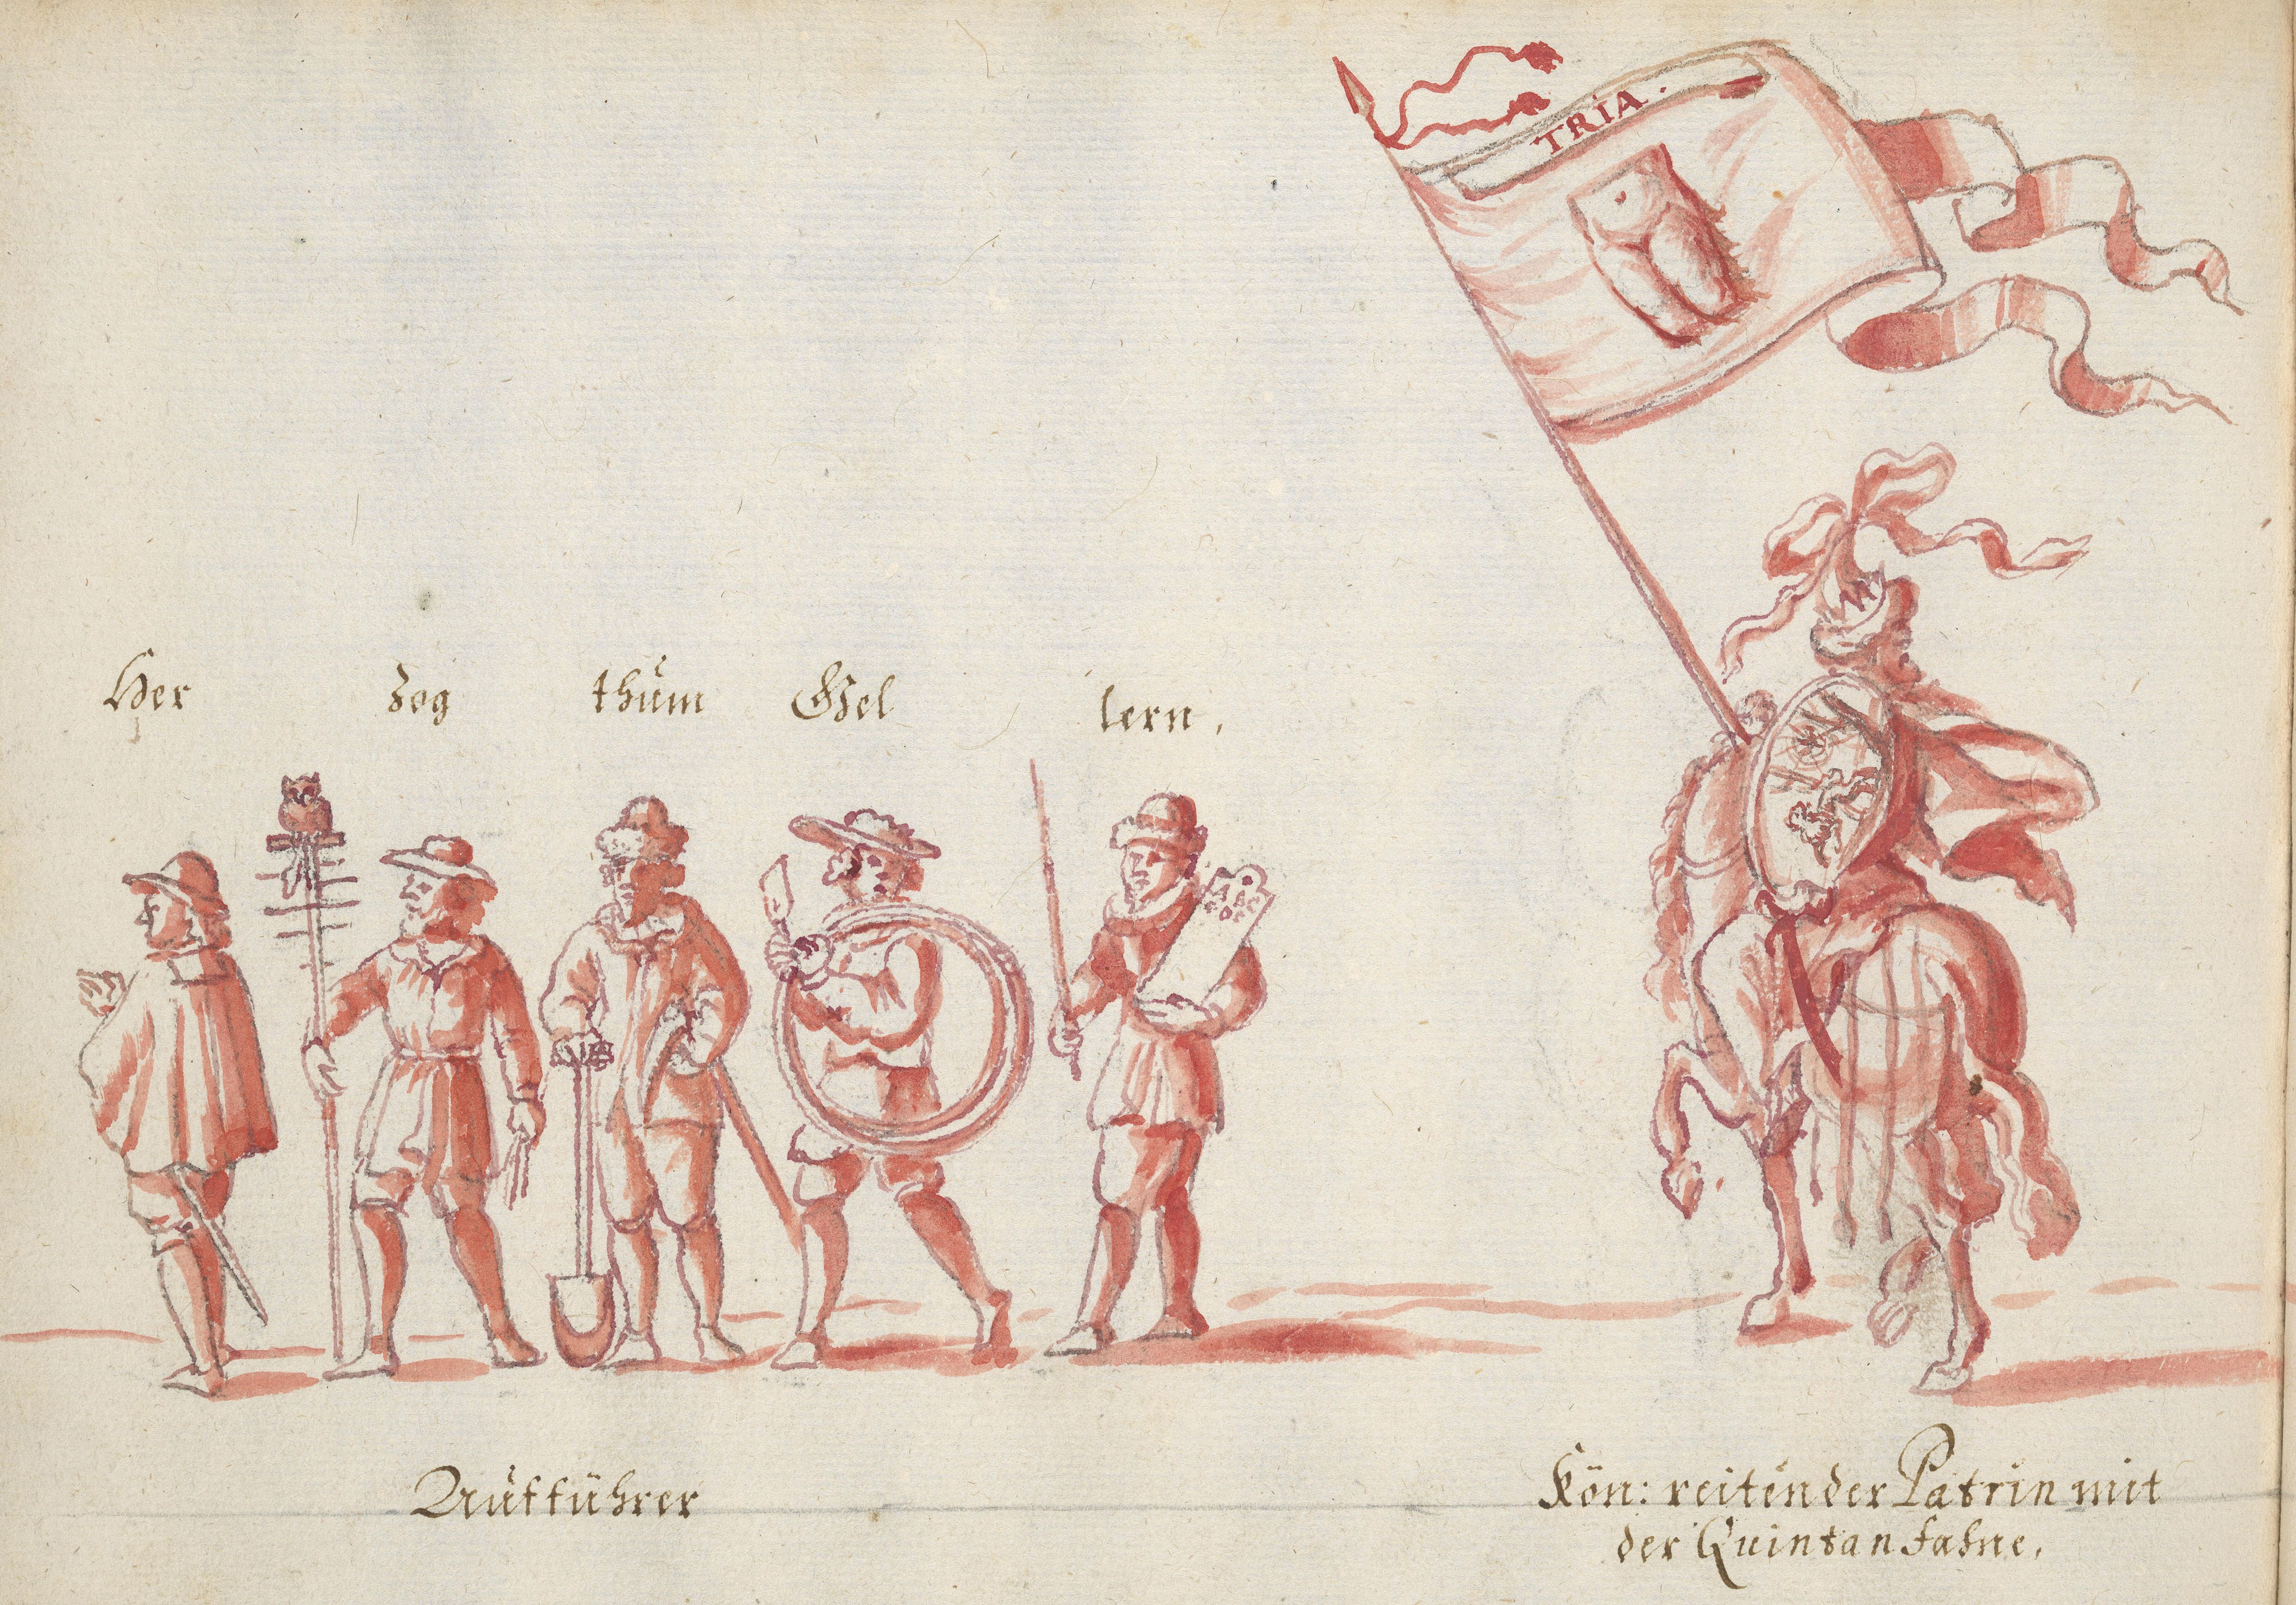 TRIA.
Her zog thŭm Gel lern.
Aŭfführer
Kön: reitender Patrin mit
der Quintan fahne.